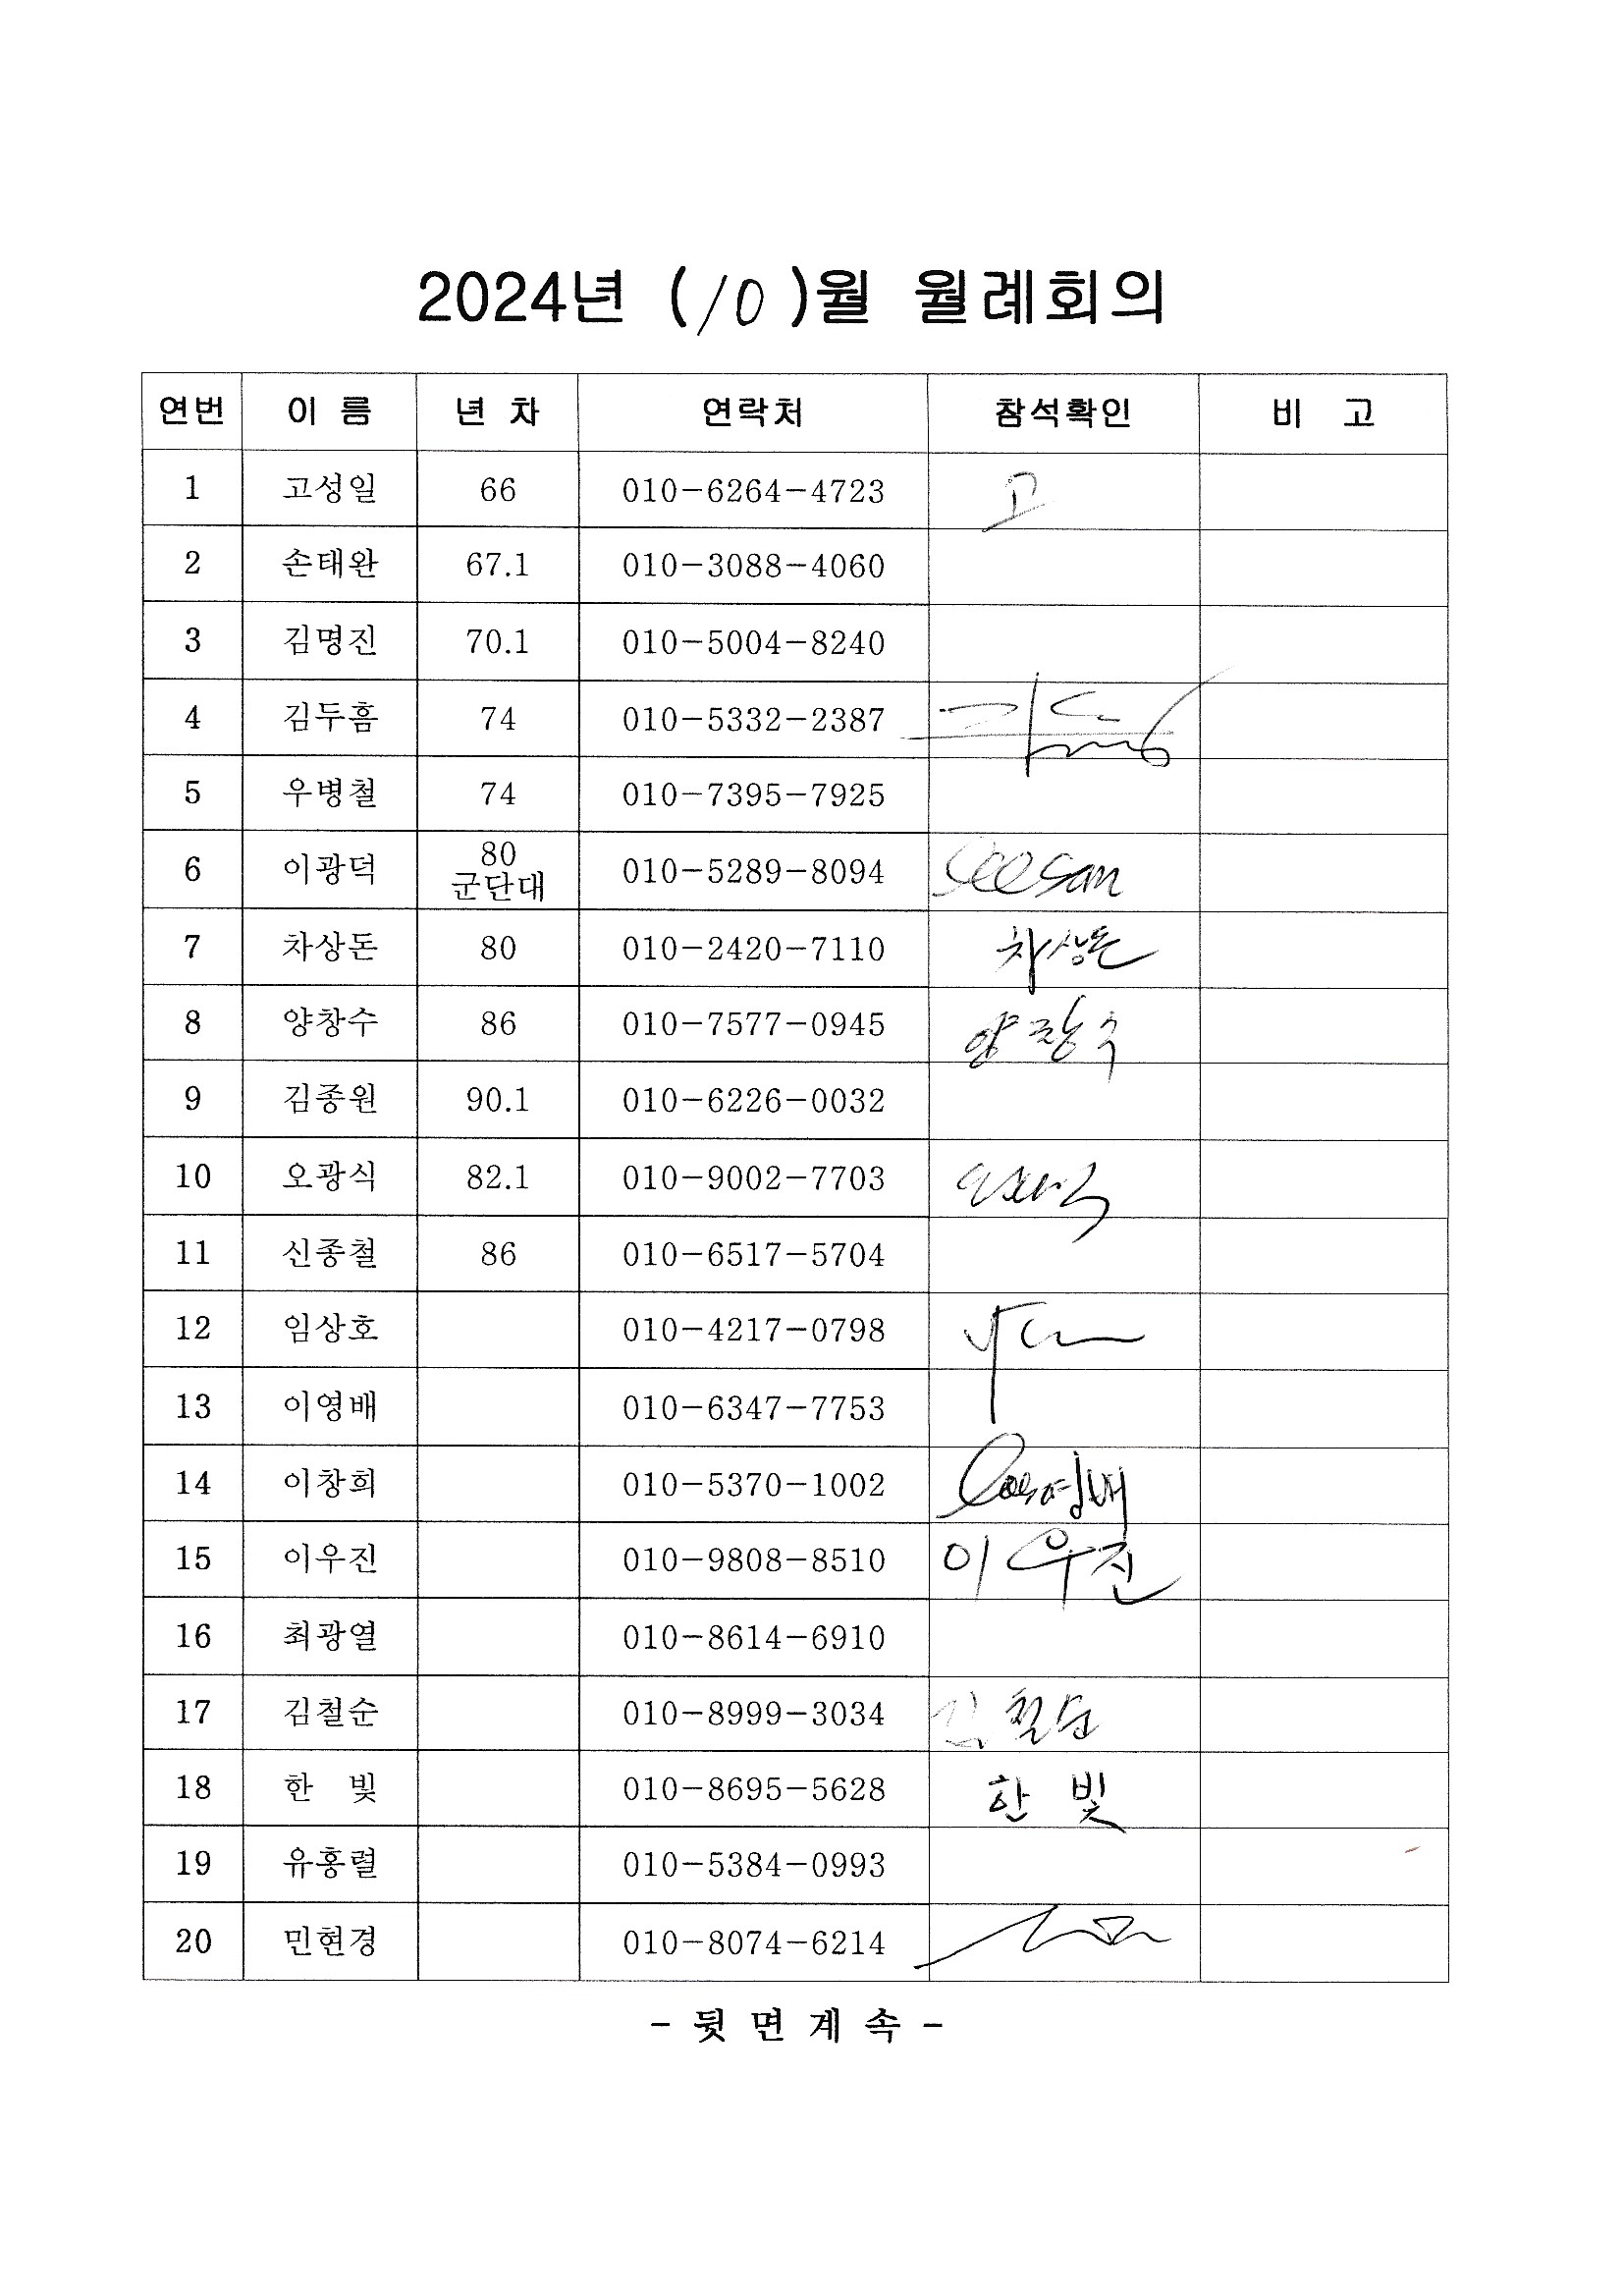 2024년 (10)월 월례회의
연번 이 름 년 차 연락처 참석확인 비 고
1 고성일 66 010-6264-4723 고
2 손태완 67.1 010-3088-4060
3 김명진 70.1 010-5004-8240
4 김두흠 74 010-5332-2387
5 우병철 74 010-7395-7925
6 이광덕 80 군단대 010-5289-8094
7 차상돈 80 010-2420-7110 차상돈
8 양창수 86 010-7577-0945 양창수
9 김종원 90.1 010-6226-0032
10 오광식 82.1 010-9002-7703
11 신종철 86 010-6517-5704
12 임상호 010-4217-0798
13 이영배 010-6347-7753
14 이창희 010-5370-1002
15 이우진 010-9808-8510 이우진
16 최광열 010-8614-6910
17 김철순 010-8999-3034 김철순
18 한 빛 010-8695-5628 한 빛
19 유홍렬 010-5384-0993
20 민현경 010-8074-6214
- 뒷 면 계 속 -